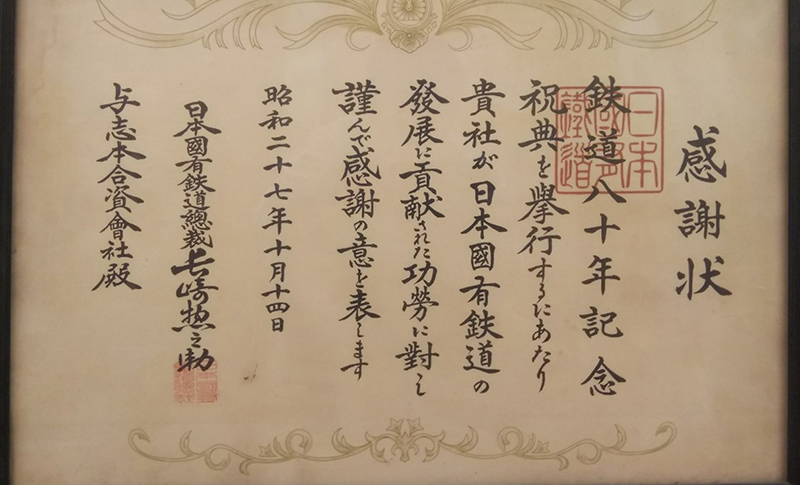 感謝状
鉄道八十年記念
祝典を擧行するにあたり
貴社が日本國有鉄道の
發展に貢献された功勞に對し
謹んで感謝の意を表します
昭和二十七年十月十四日
日本國有鉄道總裁長崎惣之助
与志本合資會社殿
日本
國有
鐵道